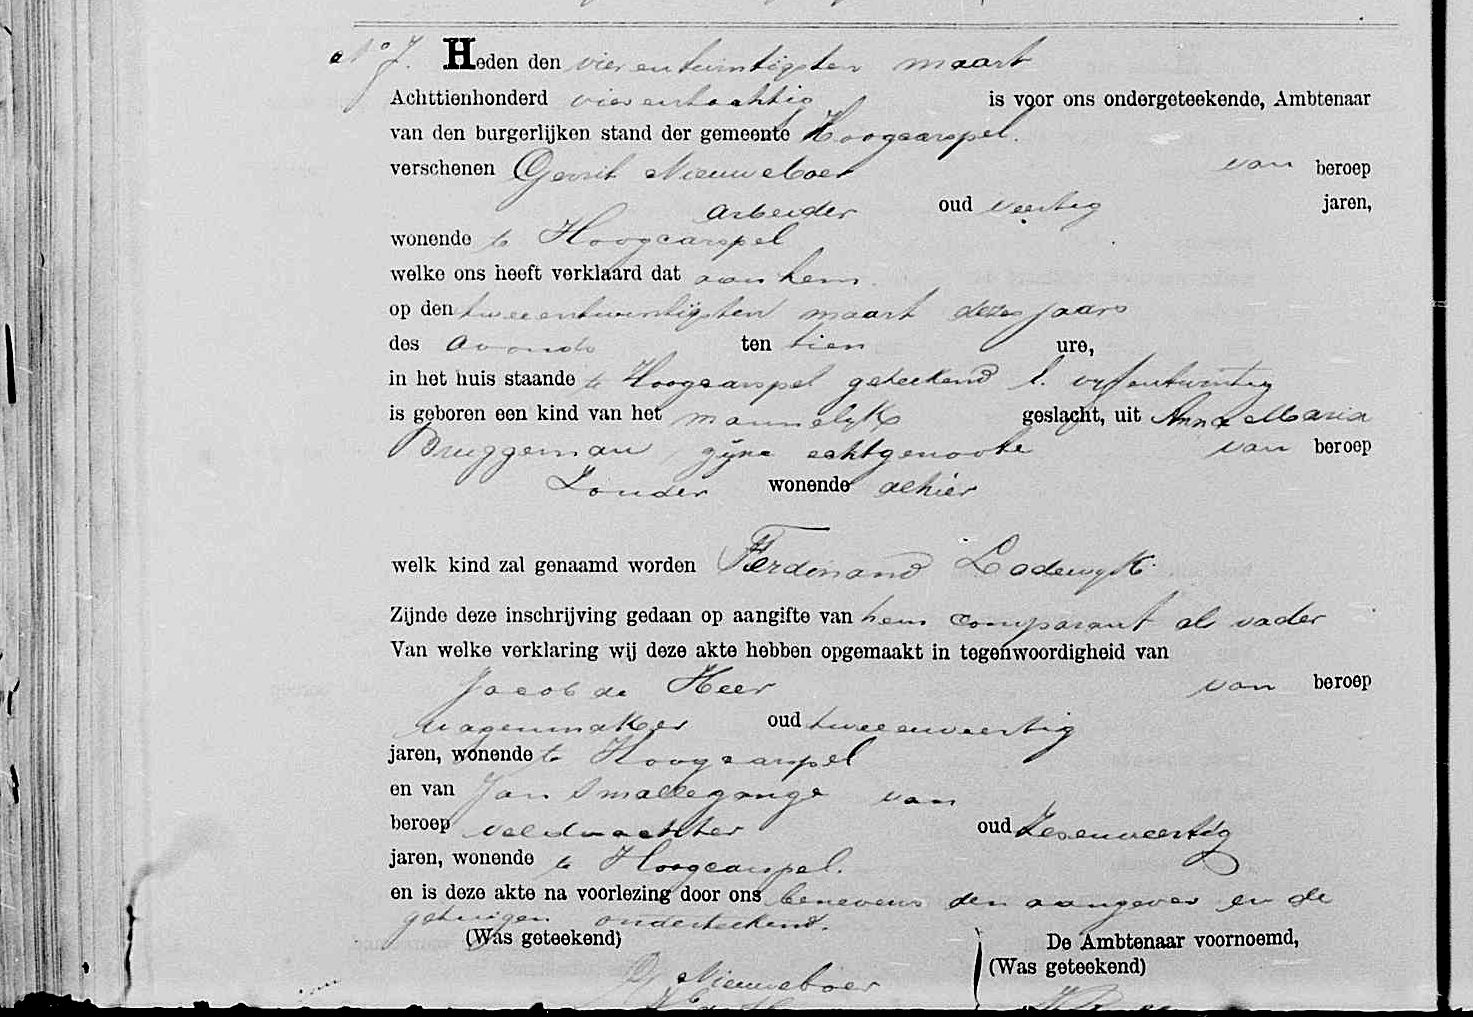 No 7. Heden den vierentwintigsten maart
Achttienhonderd vierentachtig is voor ons ondergeteekende, Ambtenaar
van den burgerlijken stand der gemeente Hoogcarspel.
verschenen Gerrit Nieuweboer van beroep
arbeider oud veertig jaren,
wonende te Hoogcarspel
welke ons heeft verklaard dat aan hem
op den tweeentwintigsten maart dezes jaars
des avonds ten tien ure,
in het huis staande te Hoogcarspel geteekend l. vijfentwintig
is geboren een kind van het mannelijk geslacht, uit Anna Maria
Bruggeman zijne echtgenoote van beroep
Zonder wonende alhier
welk kind zal genaamd worden Ferdinand Lodewijk.
Zijnde deze inschrijving gedaan op aangifte van hem comparant als vader
Van welke verklaring wij deze akte hebben opgemaakt in tegenwoordigheid van
Jacob de Heer van beroep
wagenmaker oud tweeenveertig
jaren, wonende te Hoogcarspel
en van Jan Smallegange van
beroep veldwachter oud Zesenveertig
jaren, wonende te Hoogcarspel.
en is deze akte na voorlezing door ons benevens den aangever en de
getuigen onderteekend.
(Was geteekend) De Ambtenaar voornoemd,
(Was geteekend)
G Nieuweboer